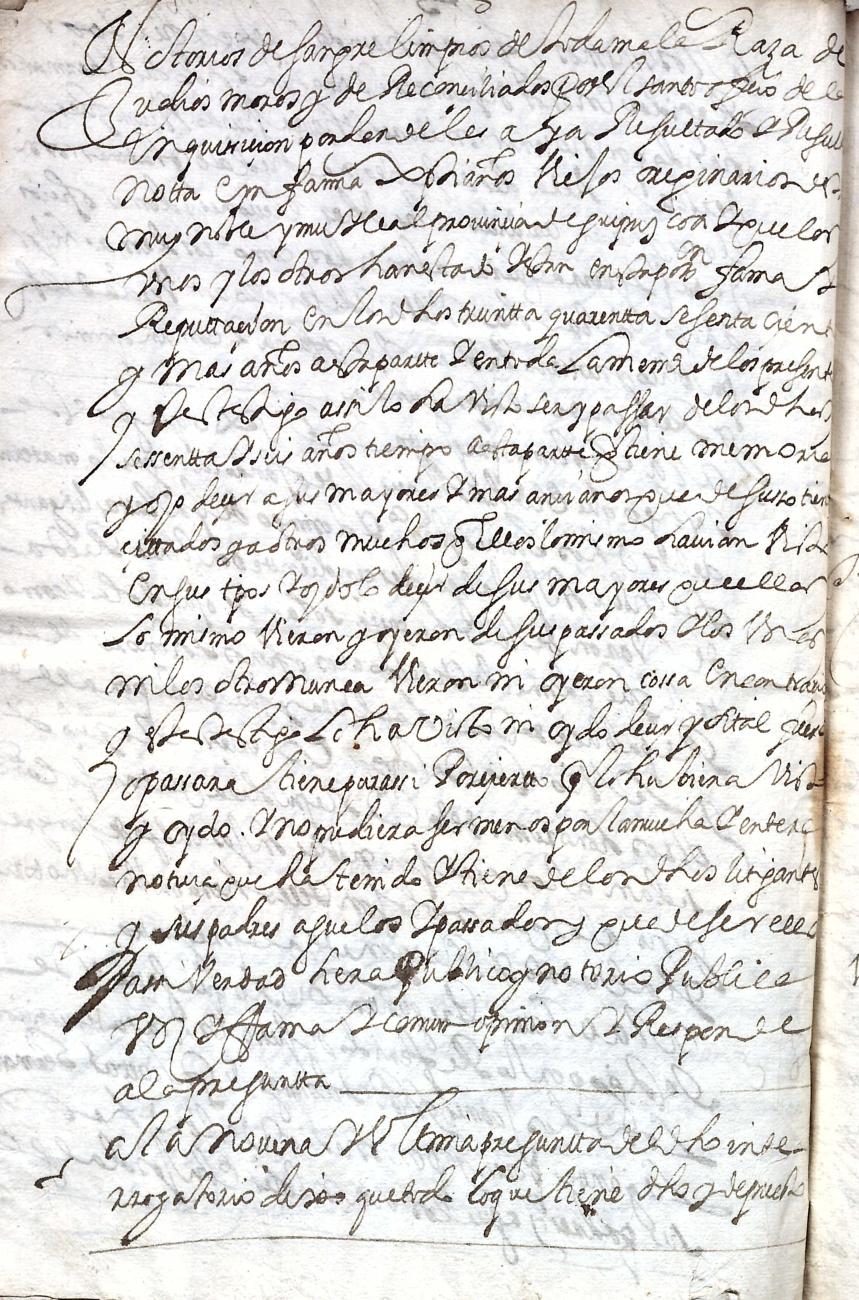 notorios de sangre limpios de toda mala Raza de
Judios moros y de Reconciliados por el santo ofiçio de la
Inquisicion por donde les aya Resultado
notta en fama xptianos viejos originarios de
muy noble y muy leal provinçia de guipuzcoa y que los
unos y los otros han estado y estan en fama y
Reputtacion en los dhos treintta quarentta sesenta cient
y mas años a esta parte y en toda la memª de los presente
y este testigo assi lo ha visto ser y passar de los dhos
sessentta y seis años tiempo a esta parte q tiene memoria
y oyo decir a sus mayores y mas ançianos que de suso tiene
cittados y a otros muchos q ellos lo mismo havian visto
en sus tpos y oydolo deçir de sus mayores que ellos
lo mismo vieron y oyeron de sus passados y los unos
ni los otros nunca vieron ni oyeron cossa en contrario
y este testigo lo ha visto ni oydo decir y si tal fuera
o passara tiene para ssi por çierto q lo hubiera visto
y oydo. y no pudiera ser menos por la mucha y entera
notiçia que ha tenido y tiene de los dhos litigantes
y sus padres aguelos y passados y que de ser ello
assi verdad hera publico y notorio Publica
voz y ffama y comun opinion y Responde
a la pregunta
a la novena y ultima pregunta del dho inte-
rrogatorio dixo que todo lo que tiene dho y depuesto